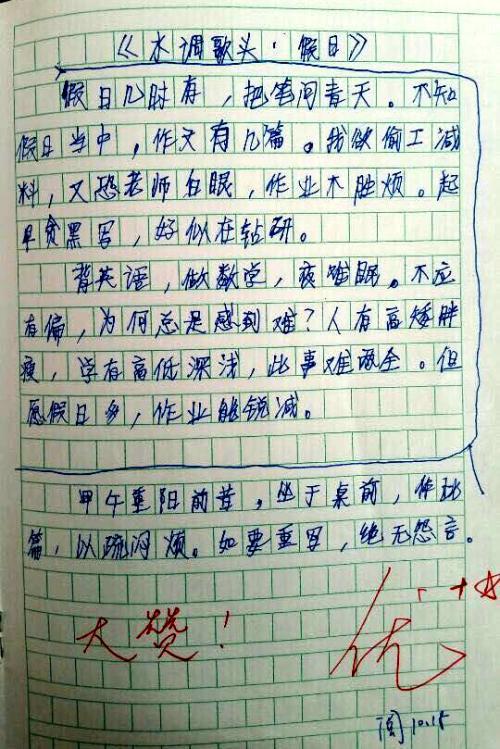 《水调歌头·假日》
假日几时有，把笔问青天。不知
假日当中，作文有几篇。我欲偷工减
料，又恐老师白眼，作业不胜烦。起
早贪黑写，好似在钻研。
背英语，做数学，夜难眠。不应
有偏，为何总是感到难？人有高矮胖
瘦，学有高低深浅，此事难两全。但
愿假日多，作业能锐减。
甲午重阳前昔，坐于桌前，作此
篇，以疏闷烦。如要重写，绝无怨言。
大赞！
优+☆
阅10.15